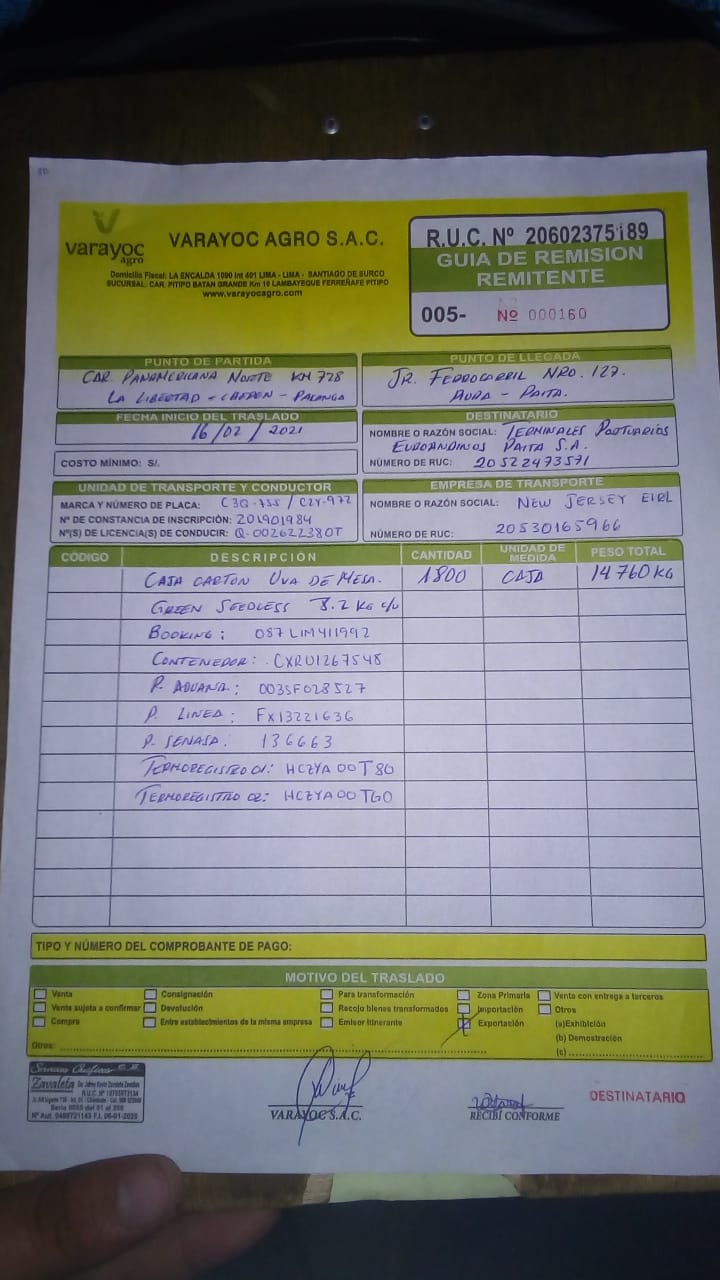 varayoc
agro
VARAYOC AGRO S.A.C.
Domicilio Fiscal: LA ENCALDA 1090 Int 401 LIMA - LIMA - SANTIAGO DE SURCO
SUCURSAL: CAR. PITIPO BATAN GRANDE Km 10 LAMBAYEQUE FERREÑAFE PITIPO
www.varayocagro.com
R.U.C. Nº 20602375189
GUIA DE REMISION
REMITENTE
005- Nº 000160
PUNTO DE PARTIDA
CAR. PANAMERICANA NORTE KM 728
LA LIBERTAD - CHEPEN - PALANGA
PUNTO DE LLEGADA
JR. FERROCARRIL NRO. 127.
AURA - PAITA.
FECHA INICIO DEL TRASLADO
16/02/2021
COSTO MÍNIMO: S/.
DESTINATARIO
NOMBRE O RAZÓN SOCIAL: TERMINALES PORTUARIOS
EUROANDINOS PAITA S.A.
NÚMERO DE RUC: 20522473571
UNIDAD DE TRANSPORTE Y CONDUCTOR
MARCA Y NÚMERO DE PLACA: C3Q-755 / C2Y-972
Nº DE CONSTANCIA DE INSCRIPCIÓN: 201901984
Nº(S) DE LICENCIA(S) DE CONDUCIR: Q-002622380T
EMPRESA DE TRANSPORTE
NOMBRE O RAZÓN SOCIAL: NEW JERSEY EIRL
NÚMERO DE RUC: 20530165966
CÓDIGO DESCRIPCIÓN CANTIDAD UNIDAD DE MEDIDA PESO TOTAL
CAJA CARTON UVA DE MESA. 1800 CAJA 14760 KG
GREEN SEEDLESS 8.2 KG c/u
BOOKING: 087LIM411992
CONTENEDOR: CXRU1267548
P. ADUANA: 0035F028527
P. LINEA: FX13221636
P. SENASA: 136663
TERMOREGISTRO 01: HCZYA00T80
TERMOREGISTRO 02: HCZYA00TG0
TIPO Y NÚMERO DEL COMPROBANTE DE PAGO:
MOTIVO DEL TRASLADO
Venta Consignación Para transformación Zona Primaria Venta con entrega a terceros
Venta sujeta a confirmar Devolución Recojo bienes transformados Importación Otros
Compra Entre establecimientos de la misma empresa Emisor Itinerante Exportación (a)Exhibición
(b) Demostración
Otros: (c)
Zavaleta
VARAYOC S.A.C.
RECIBÍ CONFORME
DESTINATARIO